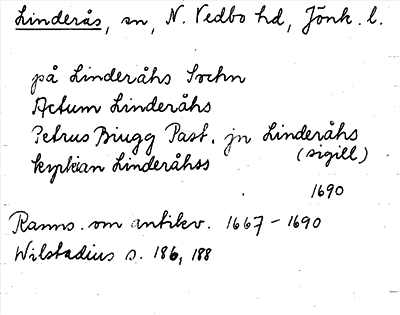 Linderås, sn, N. Vedbo hd, Jönk. l.
på Linderåhs Sochn
Actum Linderåhs
Petrus Biugg Past. jn Linderåhs
kyrkian Linderåhss (sigill)
1690
Ranns. om antikv. 1667-1690
Wilstadius s. 186, 188